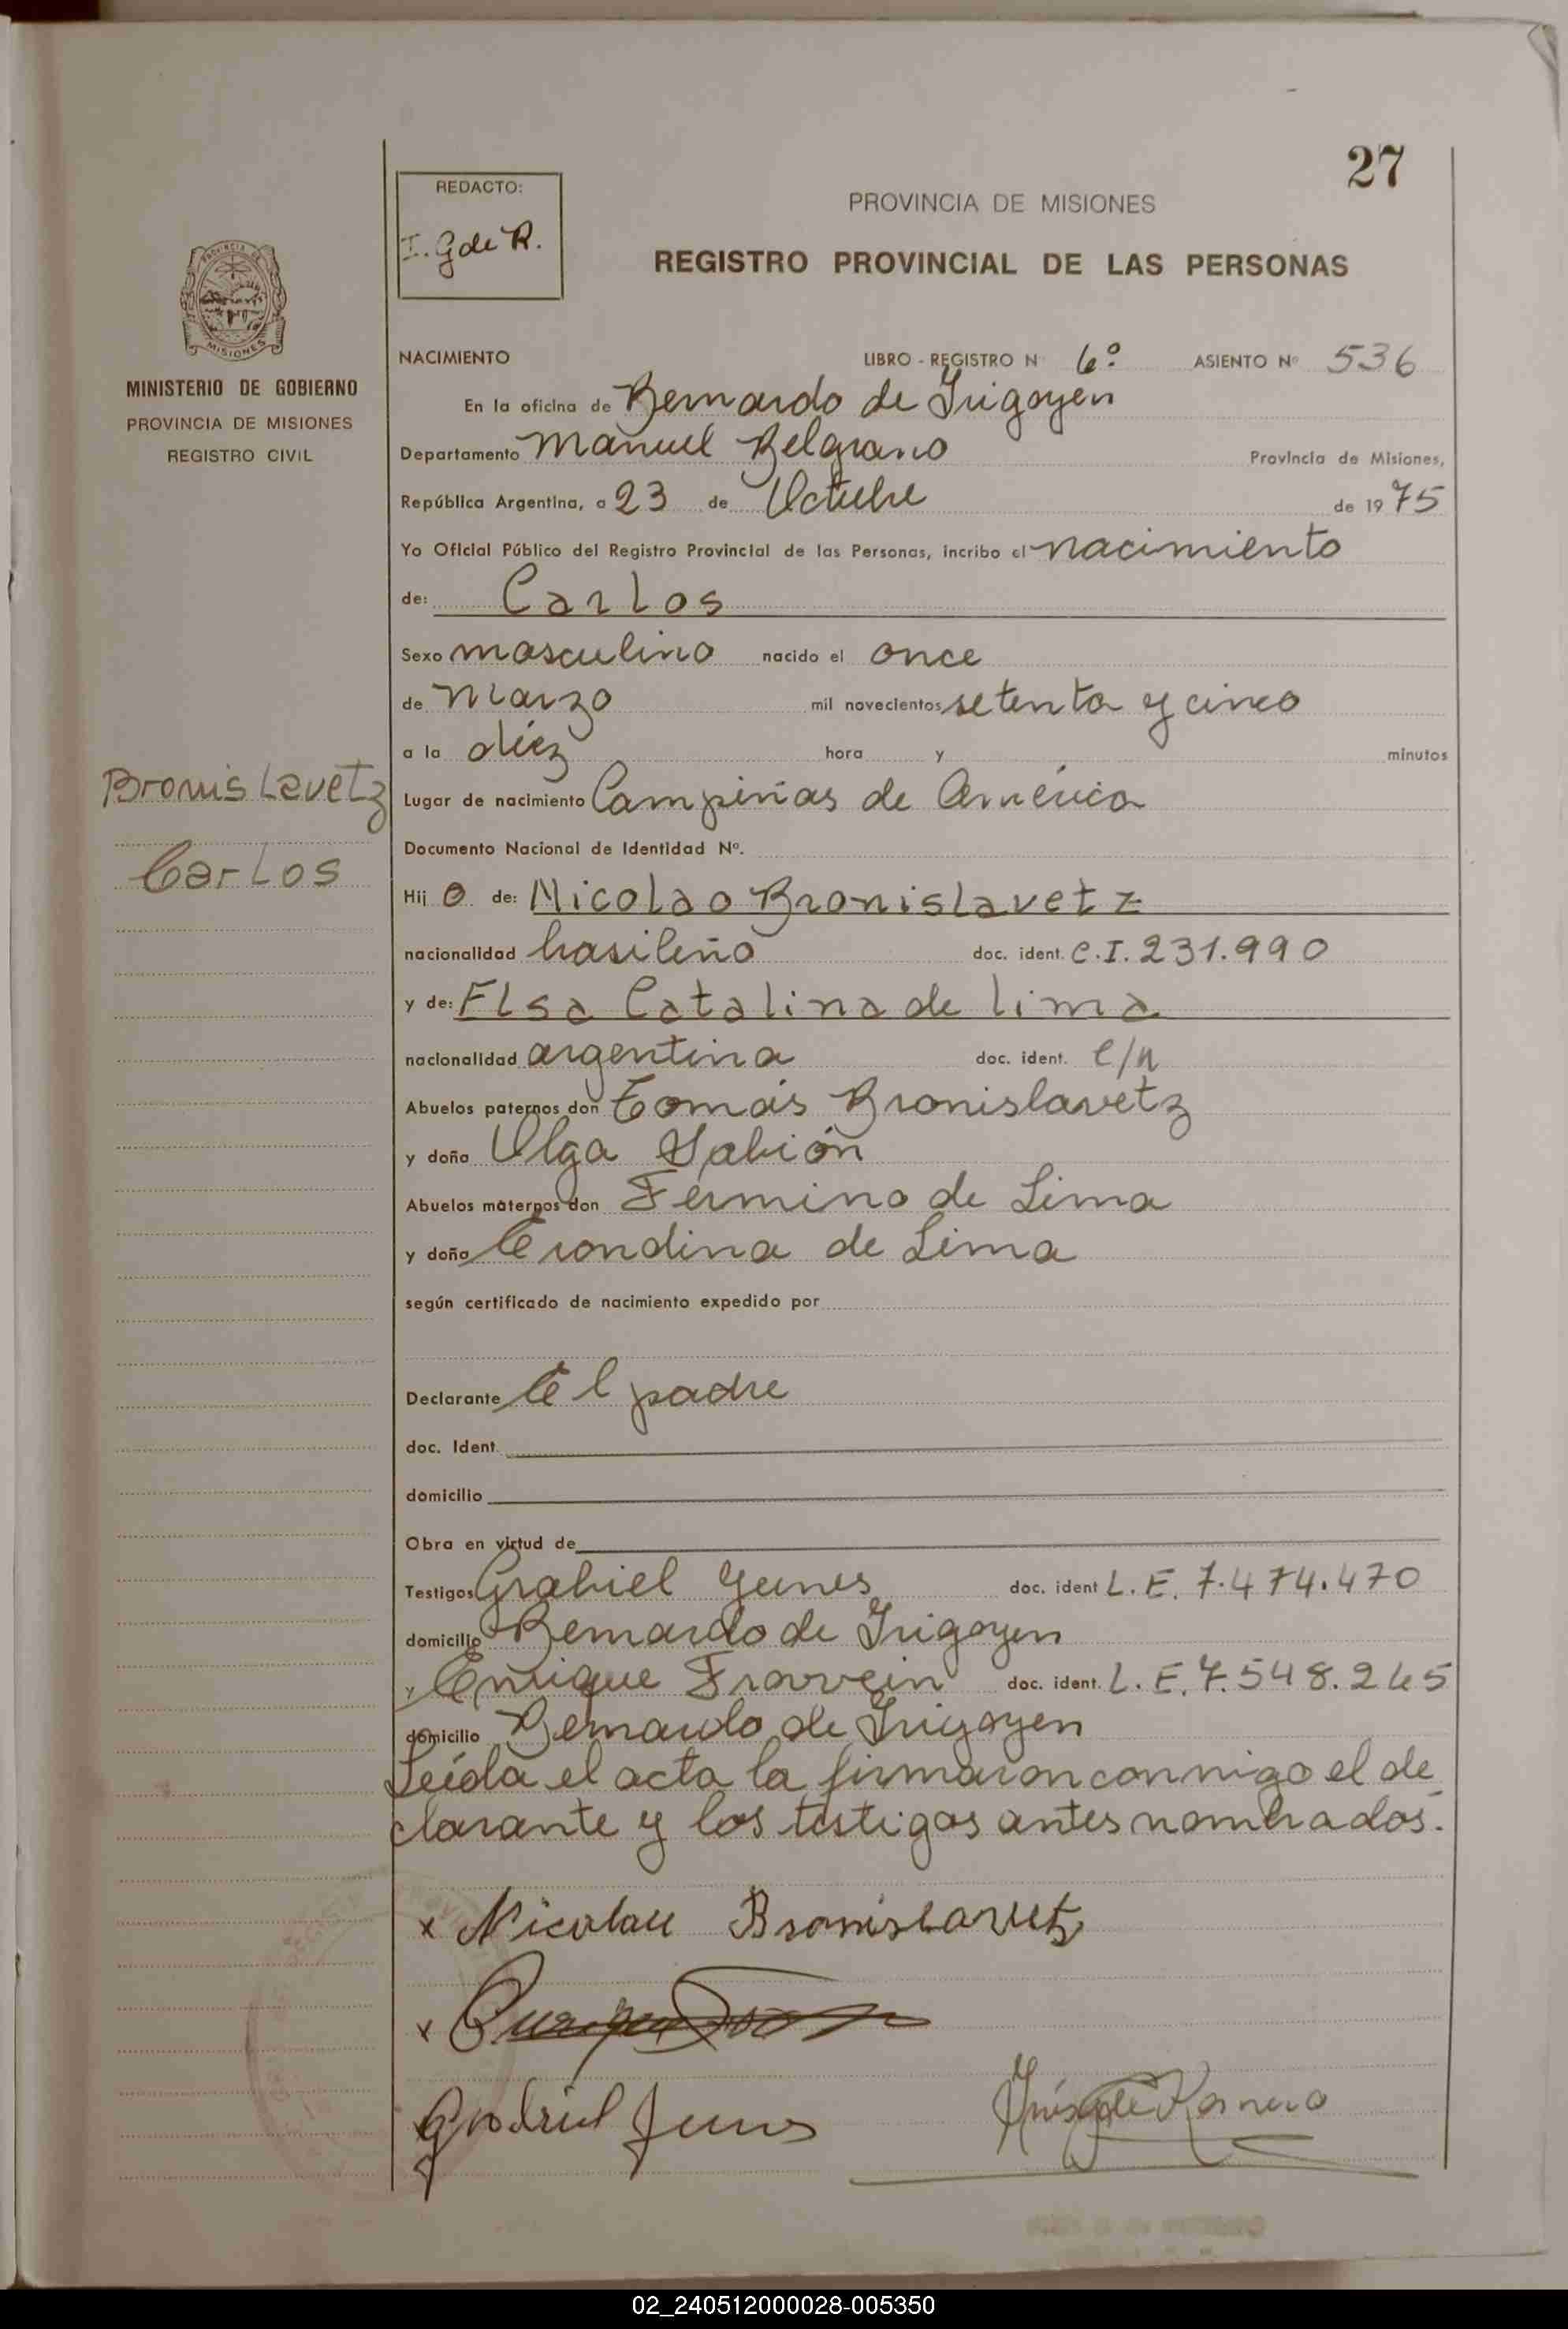 27
REDACTO:
I. G de R.
PROVINCIA DE MISIONES
REGISTRO PROVINCIAL DE LAS PERSONAS
PROVINCIA DE
MISIONES
MINISTERIO DE GOBIERNO
PROVINCIA DE MISIONES
REGISTRO CIVIL
NACIMIENTO LIBRO - REGISTRO N 6º ASIENTO Nº 536
En la oficina de Bernardo de Irigoyen
Departamento Manuel Belgrano Provincia de Misiones,
República Argentina, a 23 de Octubre de 1975
Yo Oficial Público del Registro Provincial de las Personas, incribo el nacimiento
de: Carlos
Sexo masculino nacido el once
de Marzo mil novecientos setenta y cinco
a la diez hora y minutos
Bronislavetz
Carlos
Lugar de nacimiento Campiñas de América
Documento Nacional de Identidad Nº.
Hij o de: Nicolao Bronislavetz
nacionalidad brasileño doc. ident. C.I. 231.990
y de: Elsa Catalina de lima
nacionalidad argentina doc. ident.
Abuelos paternos don Tomás Bronislavetz
y doña Olga
Abuelos maternos don Fermino de Lima
y doña Erondina de Lima
según certificado de nacimiento expedido por
Declarante El padre
doc. Ident.
domicilio
Obra en virtud de
Testigos Grabiel Yunes doc. ident L.E. 7.474.470
domicilio Bernardo de Irigoyen
y Enrique doc. ident. L.E. 7.548.265
domicilio Bernardo de Irigoyen
Leída el acta la firmaron conmigo el de
clarante y los testigos antes nombrados.
x Nicolau Bronislavetz
x
02_240512000028-005350